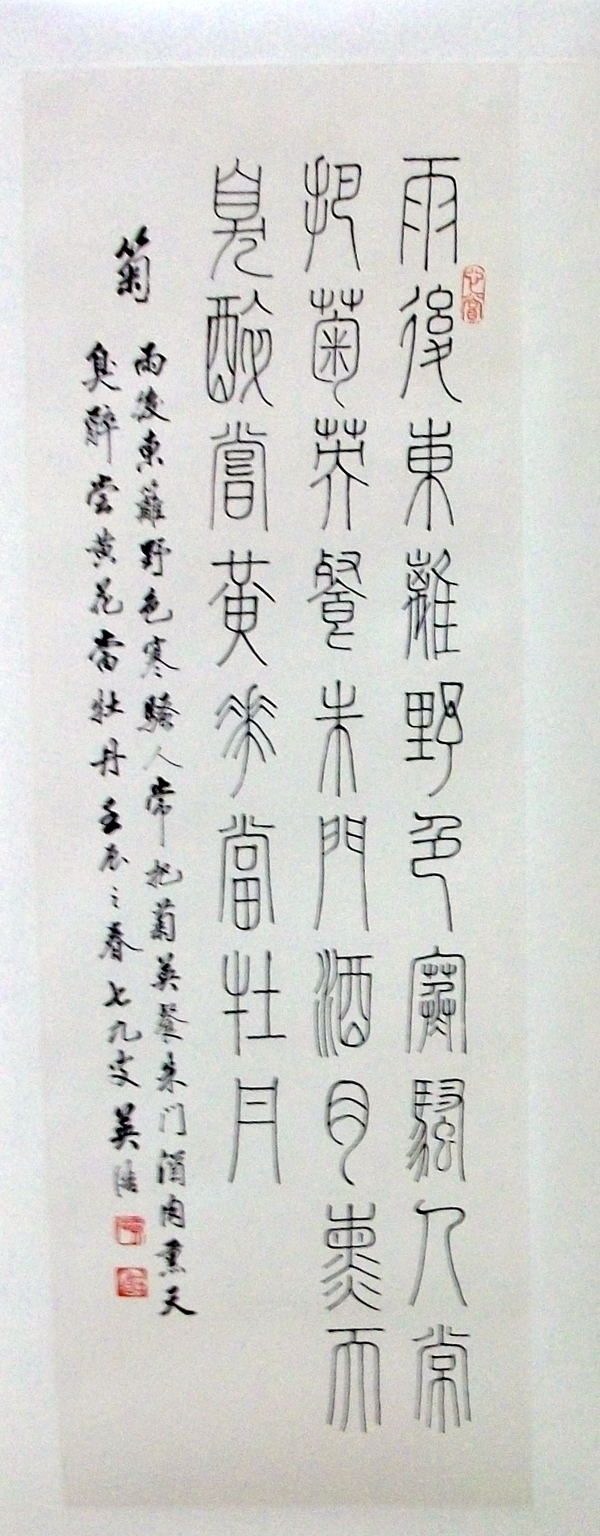 雨後東離野色寒騷人常
把菊英餐朱門酒肉熏天
臭醉嘗黃華當牡丹
菊
雨後東蘺野色寒騷人常把菊英餐朱门酒肉熏天
臭醉尝黄花當牡丹壬辰之春七九叟吴浩